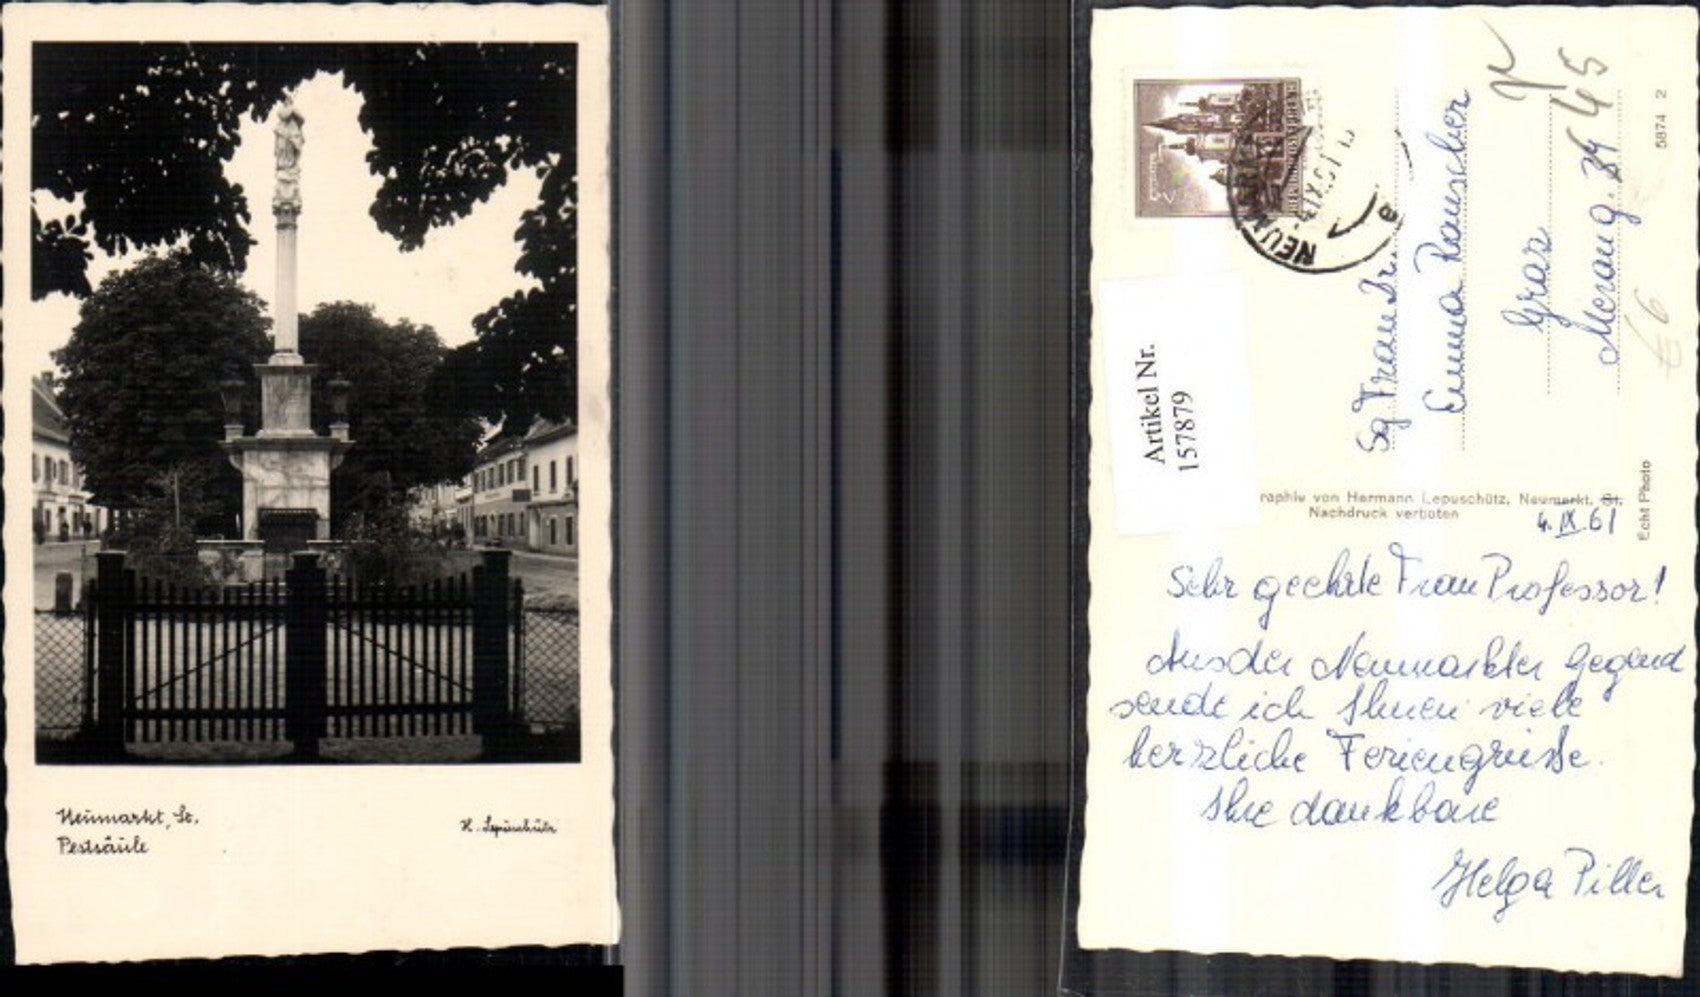 Neumarkt, St.
Pestsäule
H. Lepuschütz
REPUBLIK ÖSTERREICH
NEUMARKT
Artikel Nr.
157879
Sg Frau Dr.
Emma Rauscher
Graz
Merang. 34
45
5874 2
€6
raphie von Hermann Lepuschütz, Neumarkt, St.
Nachdruck verboten
Echt Photo
4. IX. 61
Sehr geehrte Frau Professor!
Aus der Neumarkter Gegend
sende ich Ihnen viele
herzliche Feriengrüsse.
Ihre dankbare
Helga Piller